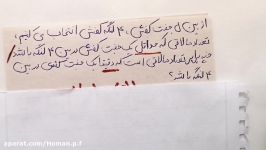 از بین ۵ جفت کفش، ۴ لنگه کفش انتخاب می کنیم،
تعداد حالاتی که حداقل یک جفت کفش در بین ۴ لنگه باشد
چند برابر تعداد حالاتی است که دقیقا یک جفت کفش در بین
۴ لنگه باشد؟
aparat.com/Homan.p.f